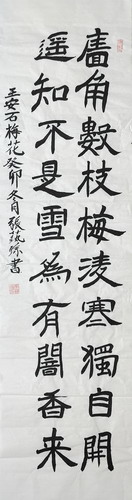 墙角數枝梅淩寒獨自開
遥知不是雪為有闇香来
王安石梅花癸卯冬月張